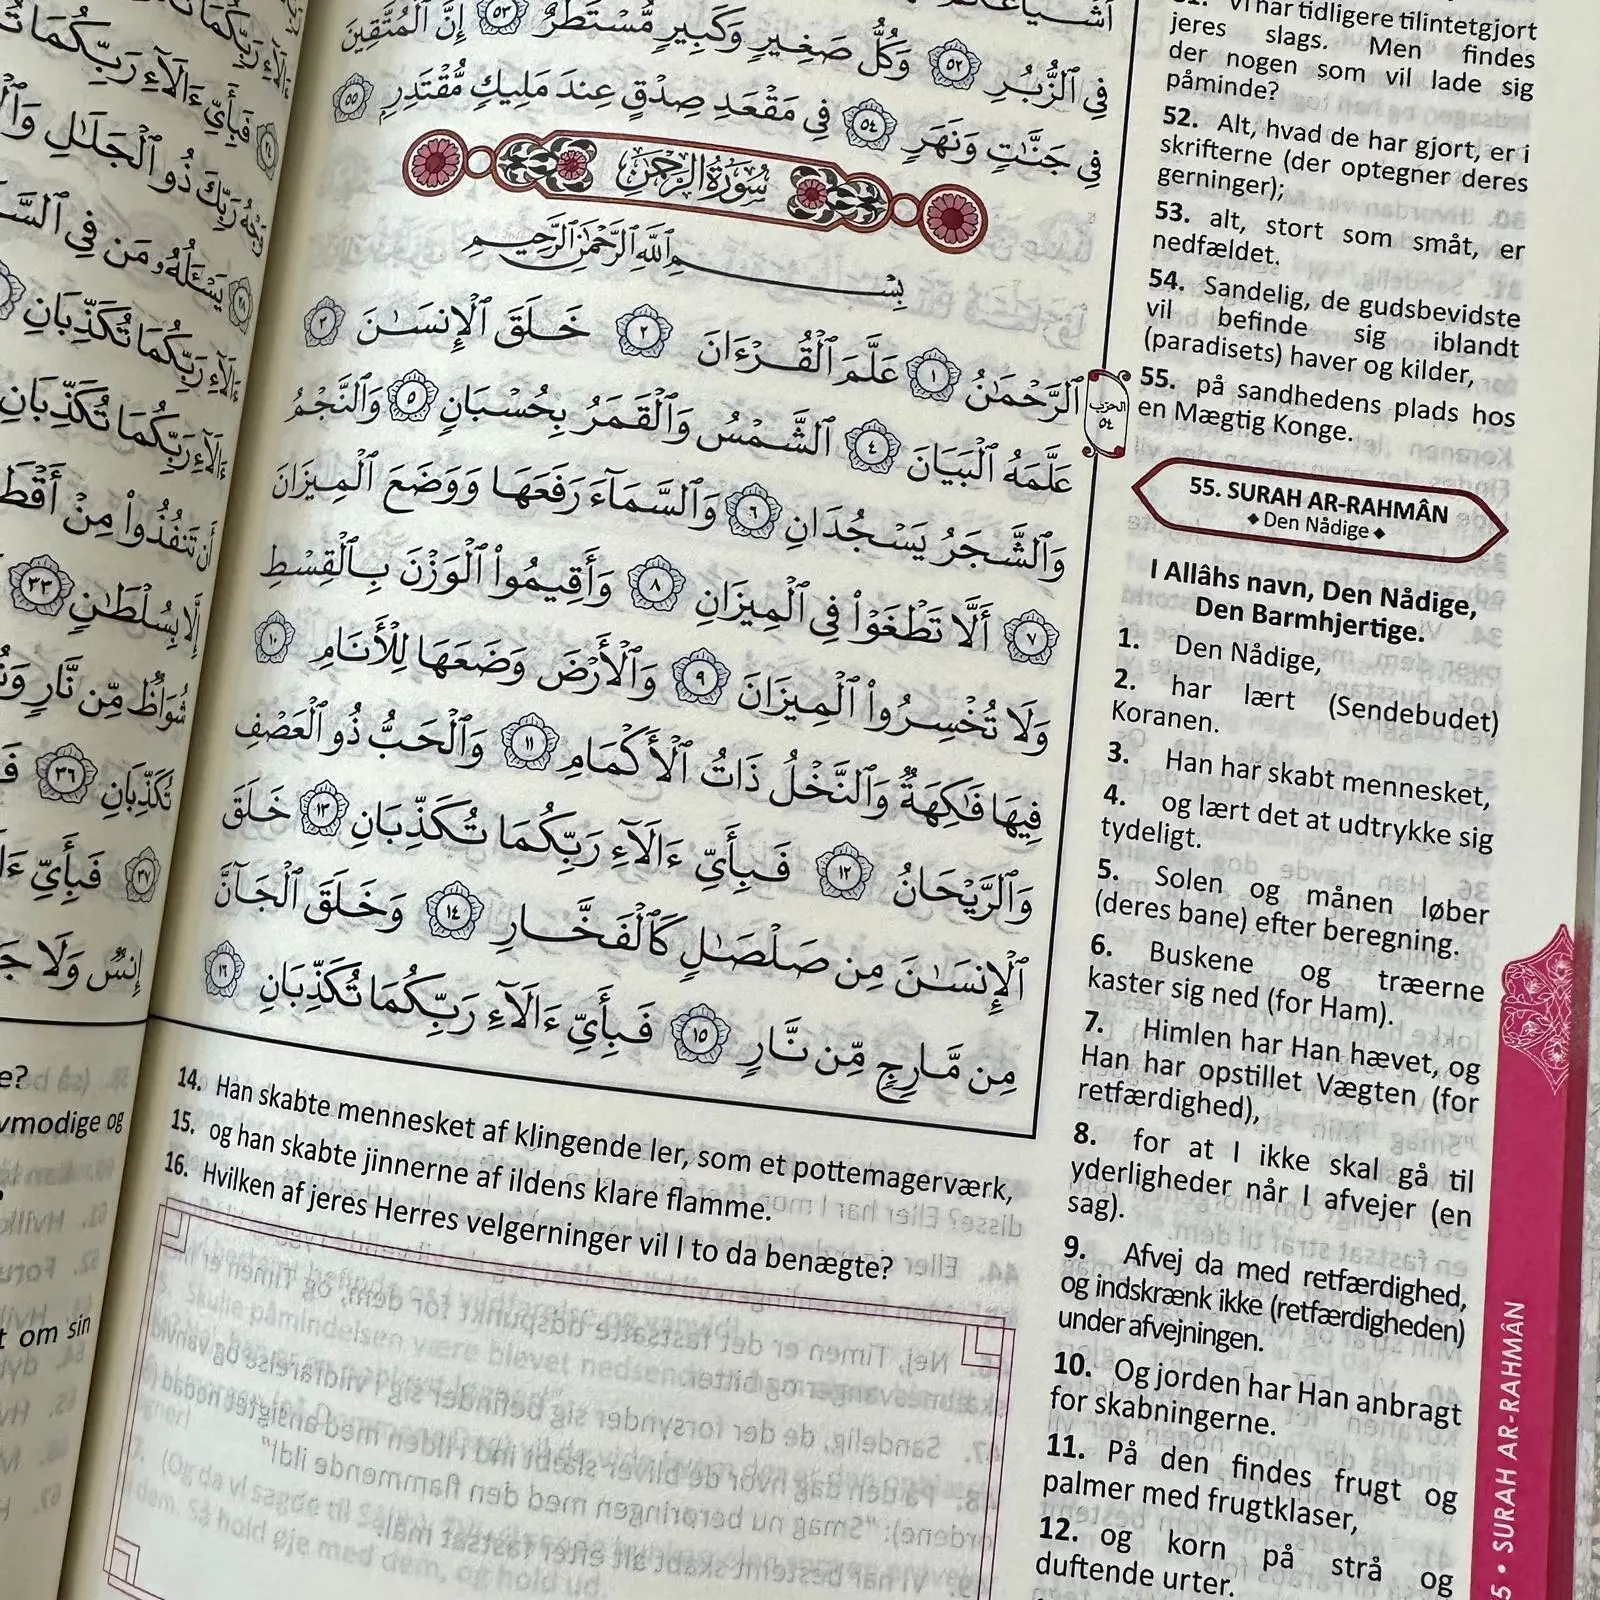 أشياعكم
فِي ٱلزُّبُرِ ٥٢ وَكُلُّ صَغِيرٍ وَكَبِيرٍ مُّسْتَطَرٌ ٥٣ إِنَّ ٱلْمُتَّقِينَ
فِي جَنَّٰتٍ وَنَهَرٍ ٥٤ فِي مَقْعَدِ صِدْقٍ عِندَ مَلِيكٍ مُّقْتَدِرٍ ٥٥
سُورَةُ الرَّحْمَٰن
بِسْمِ ٱللَّهِ ٱلرَّحْمَٰنِ ٱلرَّحِيمِ
ٱلرَّحْمَٰنُ ١ عَلَّمَ ٱلْقُرْءَانَ ٢ خَلَقَ ٱلْإِنسَٰنَ ٣
عَلَّمَهُ ٱلْبَيَانَ ٤ ٱلشَّمْسُ وَٱلْقَمَرُ بِحُسْبَانٍ ٥ وَٱلنَّجْمُ
وَٱلشَّجَرُ يَسْجُدَانِ ٦ وَٱلسَّمَآءَ رَفَعَهَا وَوَضَعَ ٱلْمِيزَانَ
٧ أَلَّا تَطْغَوْا۟ فِي ٱلْمِيزَانِ ٨ وَأَقِيمُوا۟ ٱلْوَزْنَ بِٱلْقِسْطِ
وَلَا تُخْسِرُوا۟ ٱلْمِيزَانَ ٩ وَٱلْأَرْضَ وَضَعَهَا لِلْأَنَامِ ١٠
فِيهَا فَٰكِهَةٌ وَٱلنَّخْلُ ذَاتُ ٱلْأَكْمَامِ ١١ وَٱلْحَبُّ ذُو ٱلْعَصْفِ
وَٱلرَّيْحَانُ ١٢ فَبِأَيِّ ءَالَآءِ رَبِّكُمَا تُكَذِّبَانِ ١٣ خَلَقَ
ٱلْإِنسَٰنَ مِن صَلْصَٰلٍ كَٱلْفَخَّارِ ١٤ وَخَلَقَ ٱلْجَآنَّ
مِن مَّارِجٍ مِّن نَّارٍ ١٥ فَبِأَيِّ ءَالَآءِ رَبِّكُمَا تُكَذِّبَانِ ١٦
الحزب
٥٤
14. Han skabte mennesket af klingende ler, som et pottemagerværk,
15. og han skabte jinnerne af ildens klare flamme.
16. Hvilken af jeres Herres velgerninger vil I to da benægte?
51. Vi har tidligere tilintetgjort
jeres slags. Men findes
der nogen som vil lade sig
påminde?
52. Alt, hvad de har gjort, er i
skrifterne (der optegner deres
gerninger);
53. alt, stort som småt, er
nedfældet.
54. Sandelig, de gudsbevidste
vil befinde sig iblandt
(paradisets) haver og kilder,
55. på sandhedens plads hos
en Mægtig Konge.
55. SURAH AR-RAHMÂN
◆ Den Nådige ◆
I Allâhs navn, Den Nådige,
Den Barmhjertige.
1. Den Nådige,
2. har lært (Sendebudet)
Koranen.
3. Han har skabt mennesket,
4. og lært det at udtrykke sig
tydeligt.
5. Solen og månen løber
(deres bane) efter beregning.
6. Buskene og træerne
kaster sig ned (for Ham).
7. Himlen har Han hævet, og
Han har opstillet Vægten (for
retfærdighed),
8. for at I ikke skal gå til
yderligheder når I afvejer (en
sag).
9. Afvej da med retfærdighed,
og indskrænk ikke (retfærdigheden)
under afvejningen.
10. Og jorden har Han anbragt
for skabningerne.
11. På den findes frugt og
palmer med frugtklaser,
12. og korn på strå og
duftende urter.
5 • SURAH AR-RAHMÂN
فَبِأَيِّ ءَالَآءِ رَبِّكُمَا
ذُو ٱلْجَلَٰلِ
يَسْـَٔلُهُۥ مَن فِي
ءَالَآءِ رَبِّكُمَا تُكَذِّبَانِ
ءَالَآءِ رَبِّكُمَا تُكَذِّبَانِ
أَن تَنفُذُوا۟ مِنْ
إِلَّا بِسُلْطَٰنٍ ٣٣
شُوَاظٌ مِّن نَّارٍ
تُكَذِّبَانِ ٣٦
٣٧ فَبِأَيِّ
إِنسٌ وَلَا
e?
vmodige og
t om sin